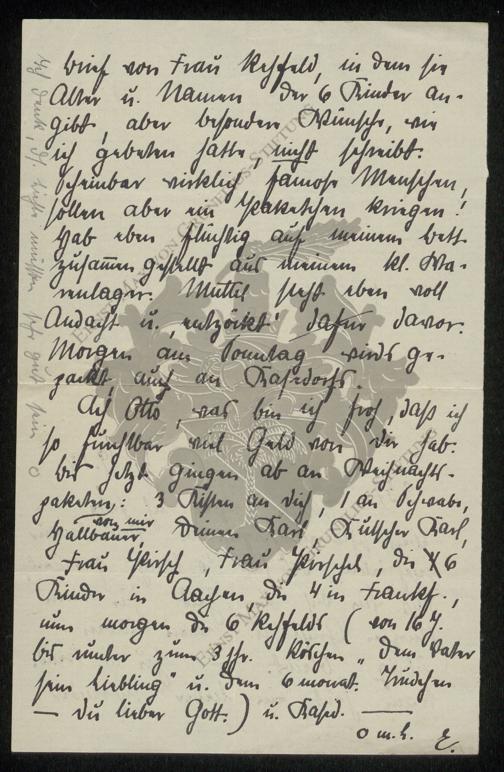 Brief von Frau Rehfeld, in dem sie
Alter u. Namen der 6 Kinder an-
gibt, aber besondere Wünsche, wie
ich gebeten hatte, nicht schreibt.
Scheinbar wirklich famose Menschen,
sollen aber ein Paketchen kriegen!
Hab eben flüchtig auf meinem Bett
zusammengestellt aus meinem kl. Wa-
renlager. Muttel steht eben voll
Andacht u. „entzückt" dafür davor.
Morgen am Sonntag wirds ge-
packt, auch an Kahsdorfs.
Ach Otto, was bin ich froh, daß ich
so furchtbar viel Geld von dir hab.
Bis jetzt gingen ab an Weihnachts-
paketen: 3 Kisten an dich, 1 an Schwabe,
von mir
Hallbauer, Deinen Karl, Kutscher Karl,
Frau Kirsch, Frau Kirschel, die 6
Kinder in Aachen die 4 in Frankf.,
nun morgen die 6 Rehfelds (von 16 J.
bis runter zum 3 jhr. Röschen „dem Vater
sein Liebling" u. dem 6 monat. Trudchen
— du lieber Gott.) u. Kahsd. —
o m. L. E.
Ernst-Marion Cornelius-Stiftung